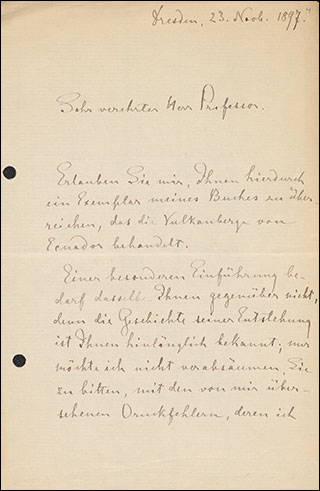 Dresden, 23. Novb. 1897.
Sehr verehrter Herr Professor.
Erlauben Sie mir, Ihnen hierdurch
ein Exemplar meines Buches zu über-
reichen, das die Vulkanberge von
Ecuador behandelt.
Einer besonderen Einführung be-
darf dasselbe Ihnen gegenüber nicht,
denn die Geschichte seiner Entstehung
ist Ihnen hinlänglich bekannt; nur
möchte ich nicht verabsäumen, Sie
zu bitten, mit den von mir über-
sehenen Druckfehlern, deren ich